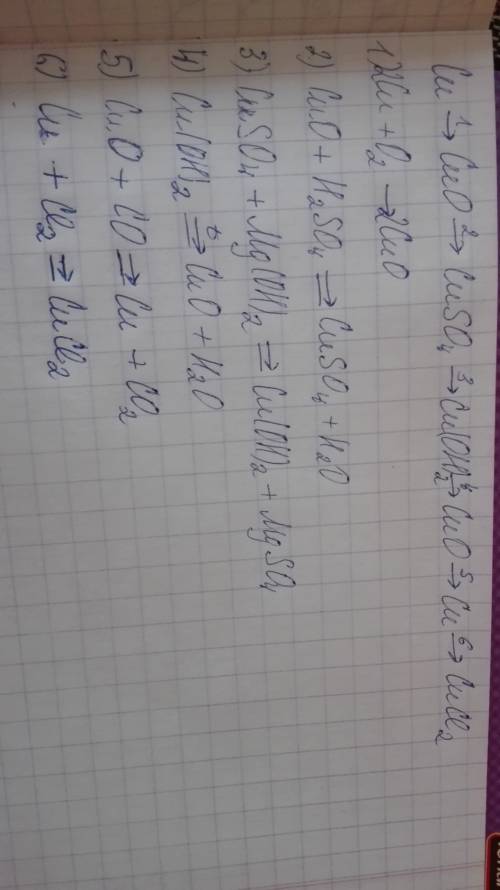 Cu ¹→ CuO ²→ CuSO₄ ³→ Cu(OH)₂ ⁴→ CuO ⁵→ Cu ⁶→ CuCl₂
1) 2Cu + O₂ → 2CuO
2) CuO + H₂SO₄ ⇒ CuSO₄ + H₂O
3) CuSO₄ + Mg(OH)₂ ⇒ Cu(OH)₂ + MgSO₄
4) Cu(OH)₂ t⇒ CuO + H₂O
5) CuO + CO ⇒ Cu + CO₂
6) Cu + Cl₂ ⇒ CuCl₂